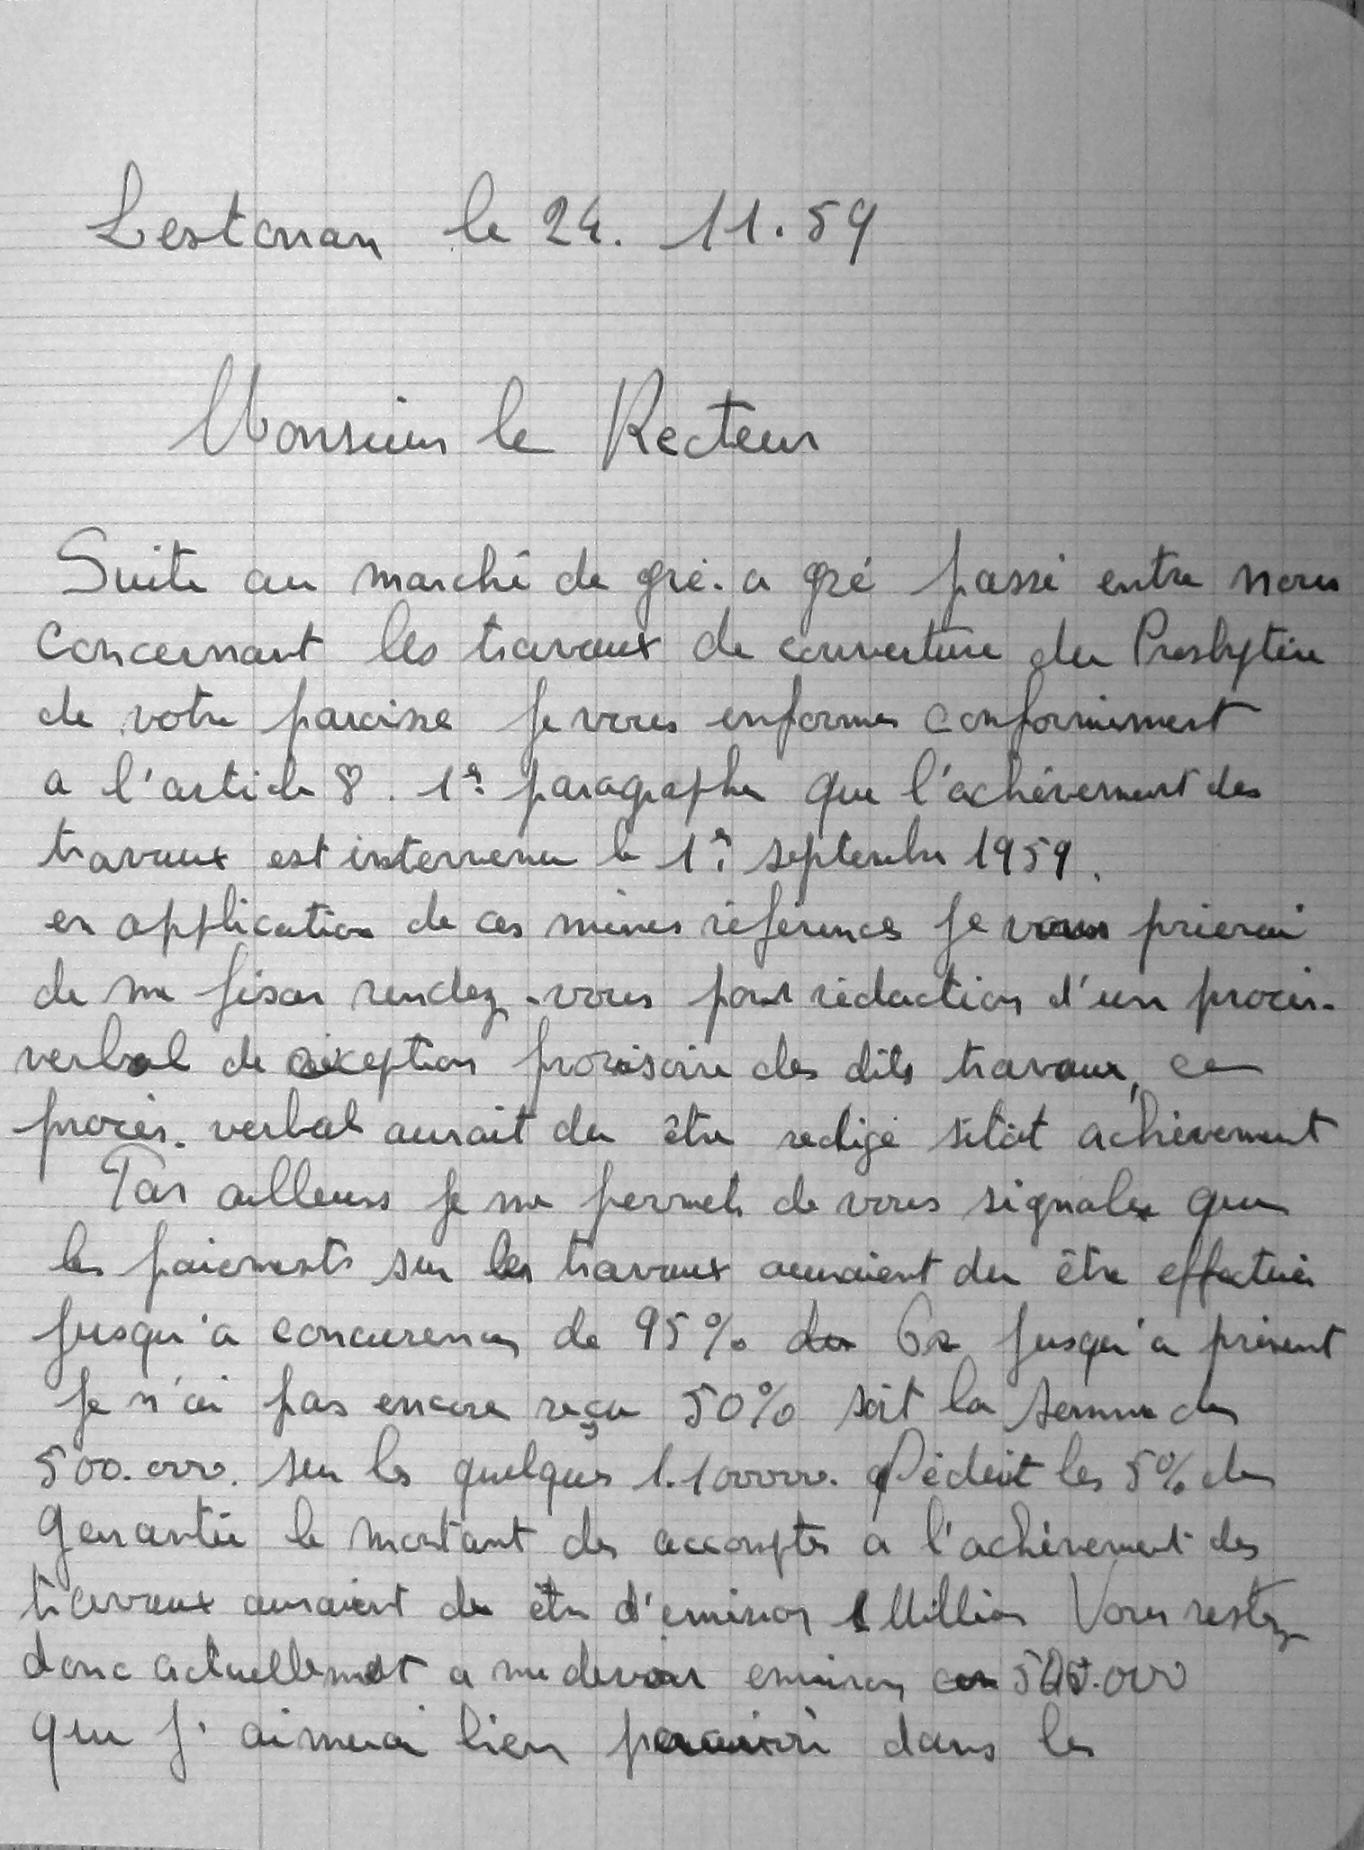 Lestonan le 24. 11. 59
Monsieur le Recteur
Suite au marché de gré. a gré passé entre nous
concernant les travaux de couverture du Presbytère
de votre paroisse je vous enformes conformement
a l'article 8. 1er paragraphe que l'achévement des
travaux est intervenu le 1er septembre 1959.
en application de ces mêmes réferences je vous prierai
de me fixer rendez-vous pour rédaction d'un procès-
verbal de réception provisoire des dits travaux, ce
procès-verbal aurait du être redigé sitôt achèvement
Par ailleurs je me permets de vous signaler que
les paiements sur les travaux auraient du être effectués
jusqu'a concurence de 95% du jusqu'a présent
je n'ai pas encore reçu 50% soit la somme de
500.000. sur les quelques 1.100000. déduit les 5% de
garantie le montant des accomptes a l'achèvement des
travaux auraient du être d'environ 1 Million Vous restez
donc actuellement a me devoir environ
que j'aimerai bien dans les